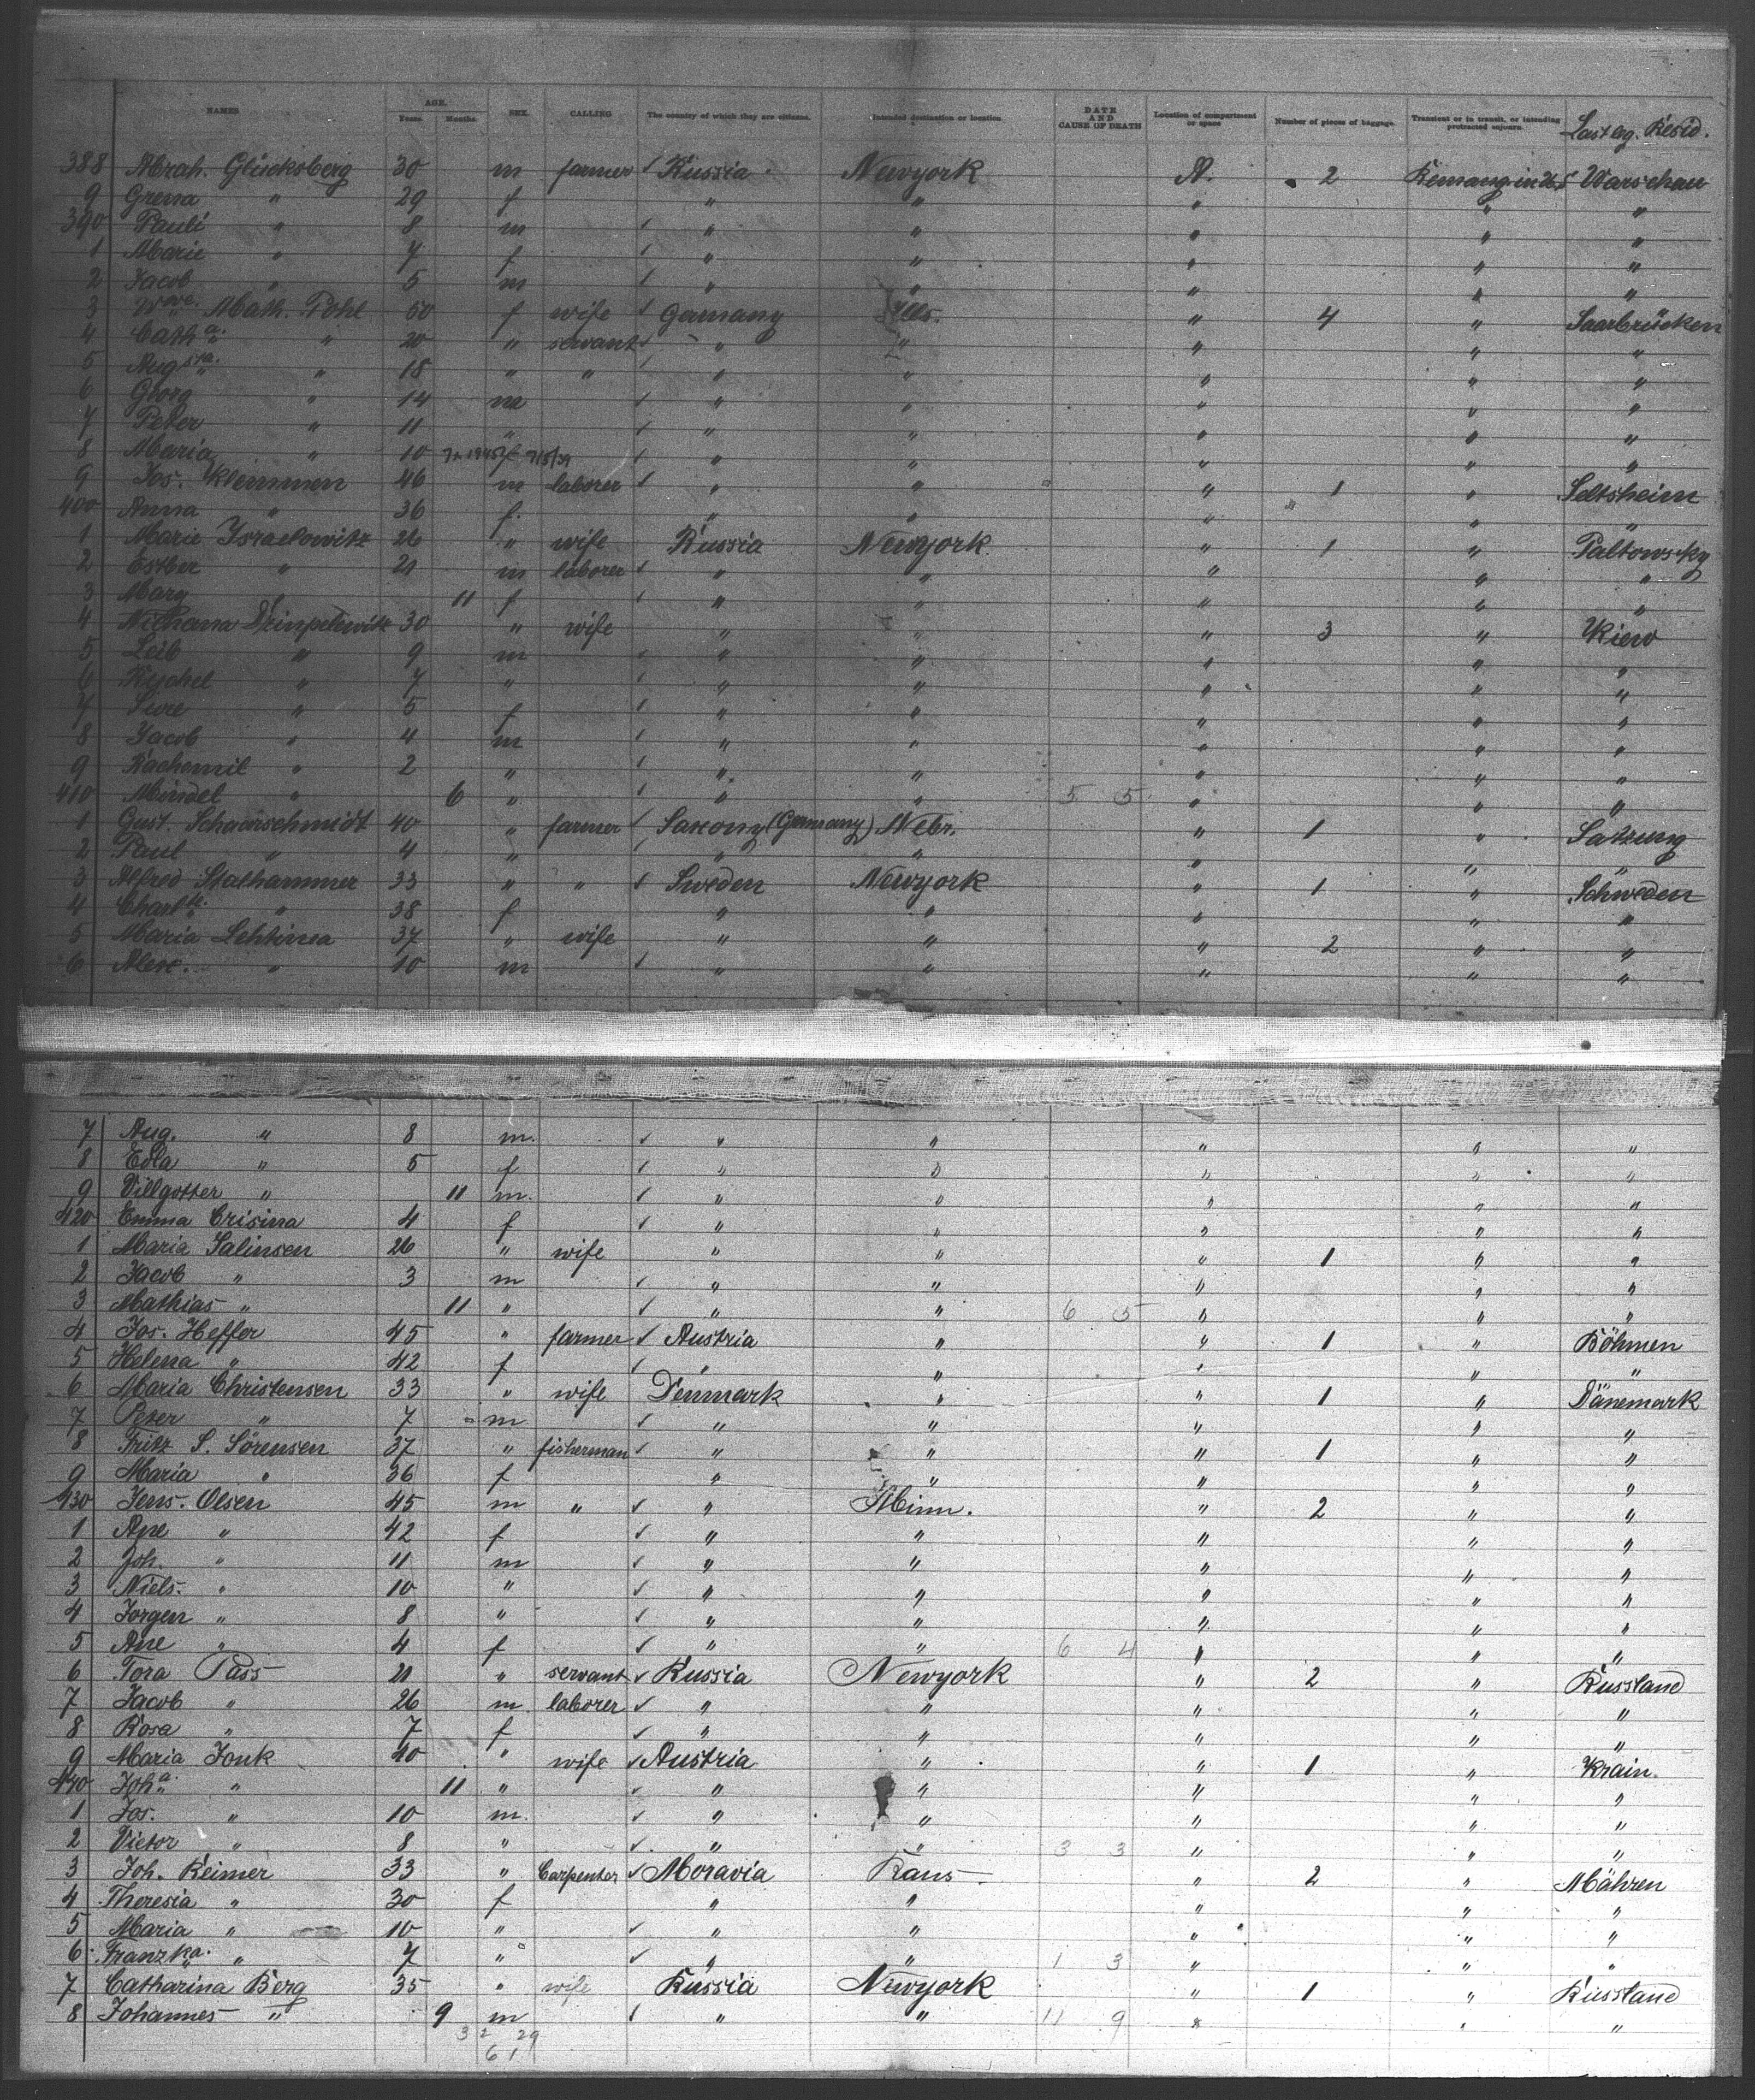 NAMES AGE. Years Months SEX. CALLING The country of which they are citizens. Intended destination or location. DATE AND CAUSE OF DEATH Location of compartment or space Number of pieces of baggage. Transient or in transit, or intending protracted sojourn. Last leg. Resid.
388 Abrah. Glücksberg 30 m farmer ✓ Russia Newyork A. 2 Warschau
9 Grena " 29 f " " " " "
390 Pauli " 8 m ✓ " " " " "
1 Marie " 7 f ✓ " " " " "
2 Jacob " 5 m ✓ " " " " "
3 Wwe. Math. Pohl 50 f wife ✓ Germany Ills. " 4 " Saarbrücken
4 Catha. " 20 " servant ✓ " " " " "
5 Augsta. " 18 " " ✓ " " " " "
6 Georg " 14 m ✓ " " " " "
7 Peter " 11 " ✓ " " " " "
8 Maria " 10 f 7/5/39 ✓ " " " " "
9 Jos. Klemmen 46 m laborer ✓ " " " 1 " Seltsheim
400 Anna " 36 f. " " " " "
1 Marie Israelowitz 26 " wife Russia Newyork " 1 " Paltowsky
2 Esther " 21 m laborer ✓ " " " " "
3 Mary " 11 f ✓ " " " " "
4 30 " wife " " " 3 " Kiew
5 Leib " 9 m ✓ " " " " "
6 Ruchel " 7 " ✓ " " " " "
7 Sure " 5 f ✓ " " " " "
8 Jacob " 4 m ✓ " " " " "
9 Rachemil " 2 " ✓ " " " " "
410 Mindel " 6 " " " 5 5 " " "
1 Gust. Schaarschmidt 40 " farmer ✓ Saxony (Germany) Nebr. " 1 " Satzung
2 Paul " 4 " ✓ " " " " "
3 Alfred Stalhammer 33 " " ✓ Sweden Newyork " 1 " Schweden
4 Charltte. " 38 f " " " " "
5 Maria Lehtinea 37 " wife " " " 2 " "
6 Alex. " 10 m ✓ " " " " "
7 Aug. " 8 m. ✓ " " " " "
8 Edla " 5 f ✓ " " " " "
9 Villgotter " 11 m. ✓ " " " " "
420 Emma Crisina 4 f ✓ " " " " "
1 Maria Salinsen 26 " wife " " " 1 " "
2 Jacob " 3 m ✓ " " " " "
3 Mathias " 11 " ✓ " " 6 5 " " "
4 Jos. Heffer 45 " farmer ✓ Austria " " 1 " Böhmen
5 Helena " 42 f ✓ " " " " "
6 Maria Christensen 33 " wife Denmark " " 1 " Dänemark
7 Peter " 7 m ✓ " " " " "
8 Fritz S. Sörensen 37 " fisherman ✓ " " " 1 " "
9 Maria " 36 f " " " " "
430 Jens. Olsen 45 m " ✓ " Minn. " 2 " "
1 Ane " 42 f ✓ " " " " "
2 Joh. " 11 m ✓ " " " " "
3 Niels. " 10 " ✓ " " " " "
4 Jorgen " 8 " ✓ " " " " "
5 Ane " 4 f ✓ " " 6 4 " " "
6 Tora Pass 21 " servant ✓ Russia Newyork " 2 " Russland
7 Jacob " 26 m laborer ✓ " " " " "
8 Rosa " 7 f ✓ " " " " "
9 Maria Jonk 40 " wife ✓ Austria " " 1 " Krain.
440 Joha. " 11 " ✓ " " " " "
1 Jos. " 10 m. ✓ " " " " "
2 Victor " 8 " ✓ " " 3 3 " " "
3 Joh. Reimer 33 " Carpenter ✓ Moravia Kans " 2 " Mähren
4 Theresia " 30 f " " " " "
5 Maria " 10 " ✓ " " " " "
6 Franzka. " 7 " ✓ " " 1 3 " " "
7 Catharina Berg 35 " wife Russia Newyork " 1 " Russland
8 Johannes " 9 m ✓ " " 11 9 " " "
32 29
61